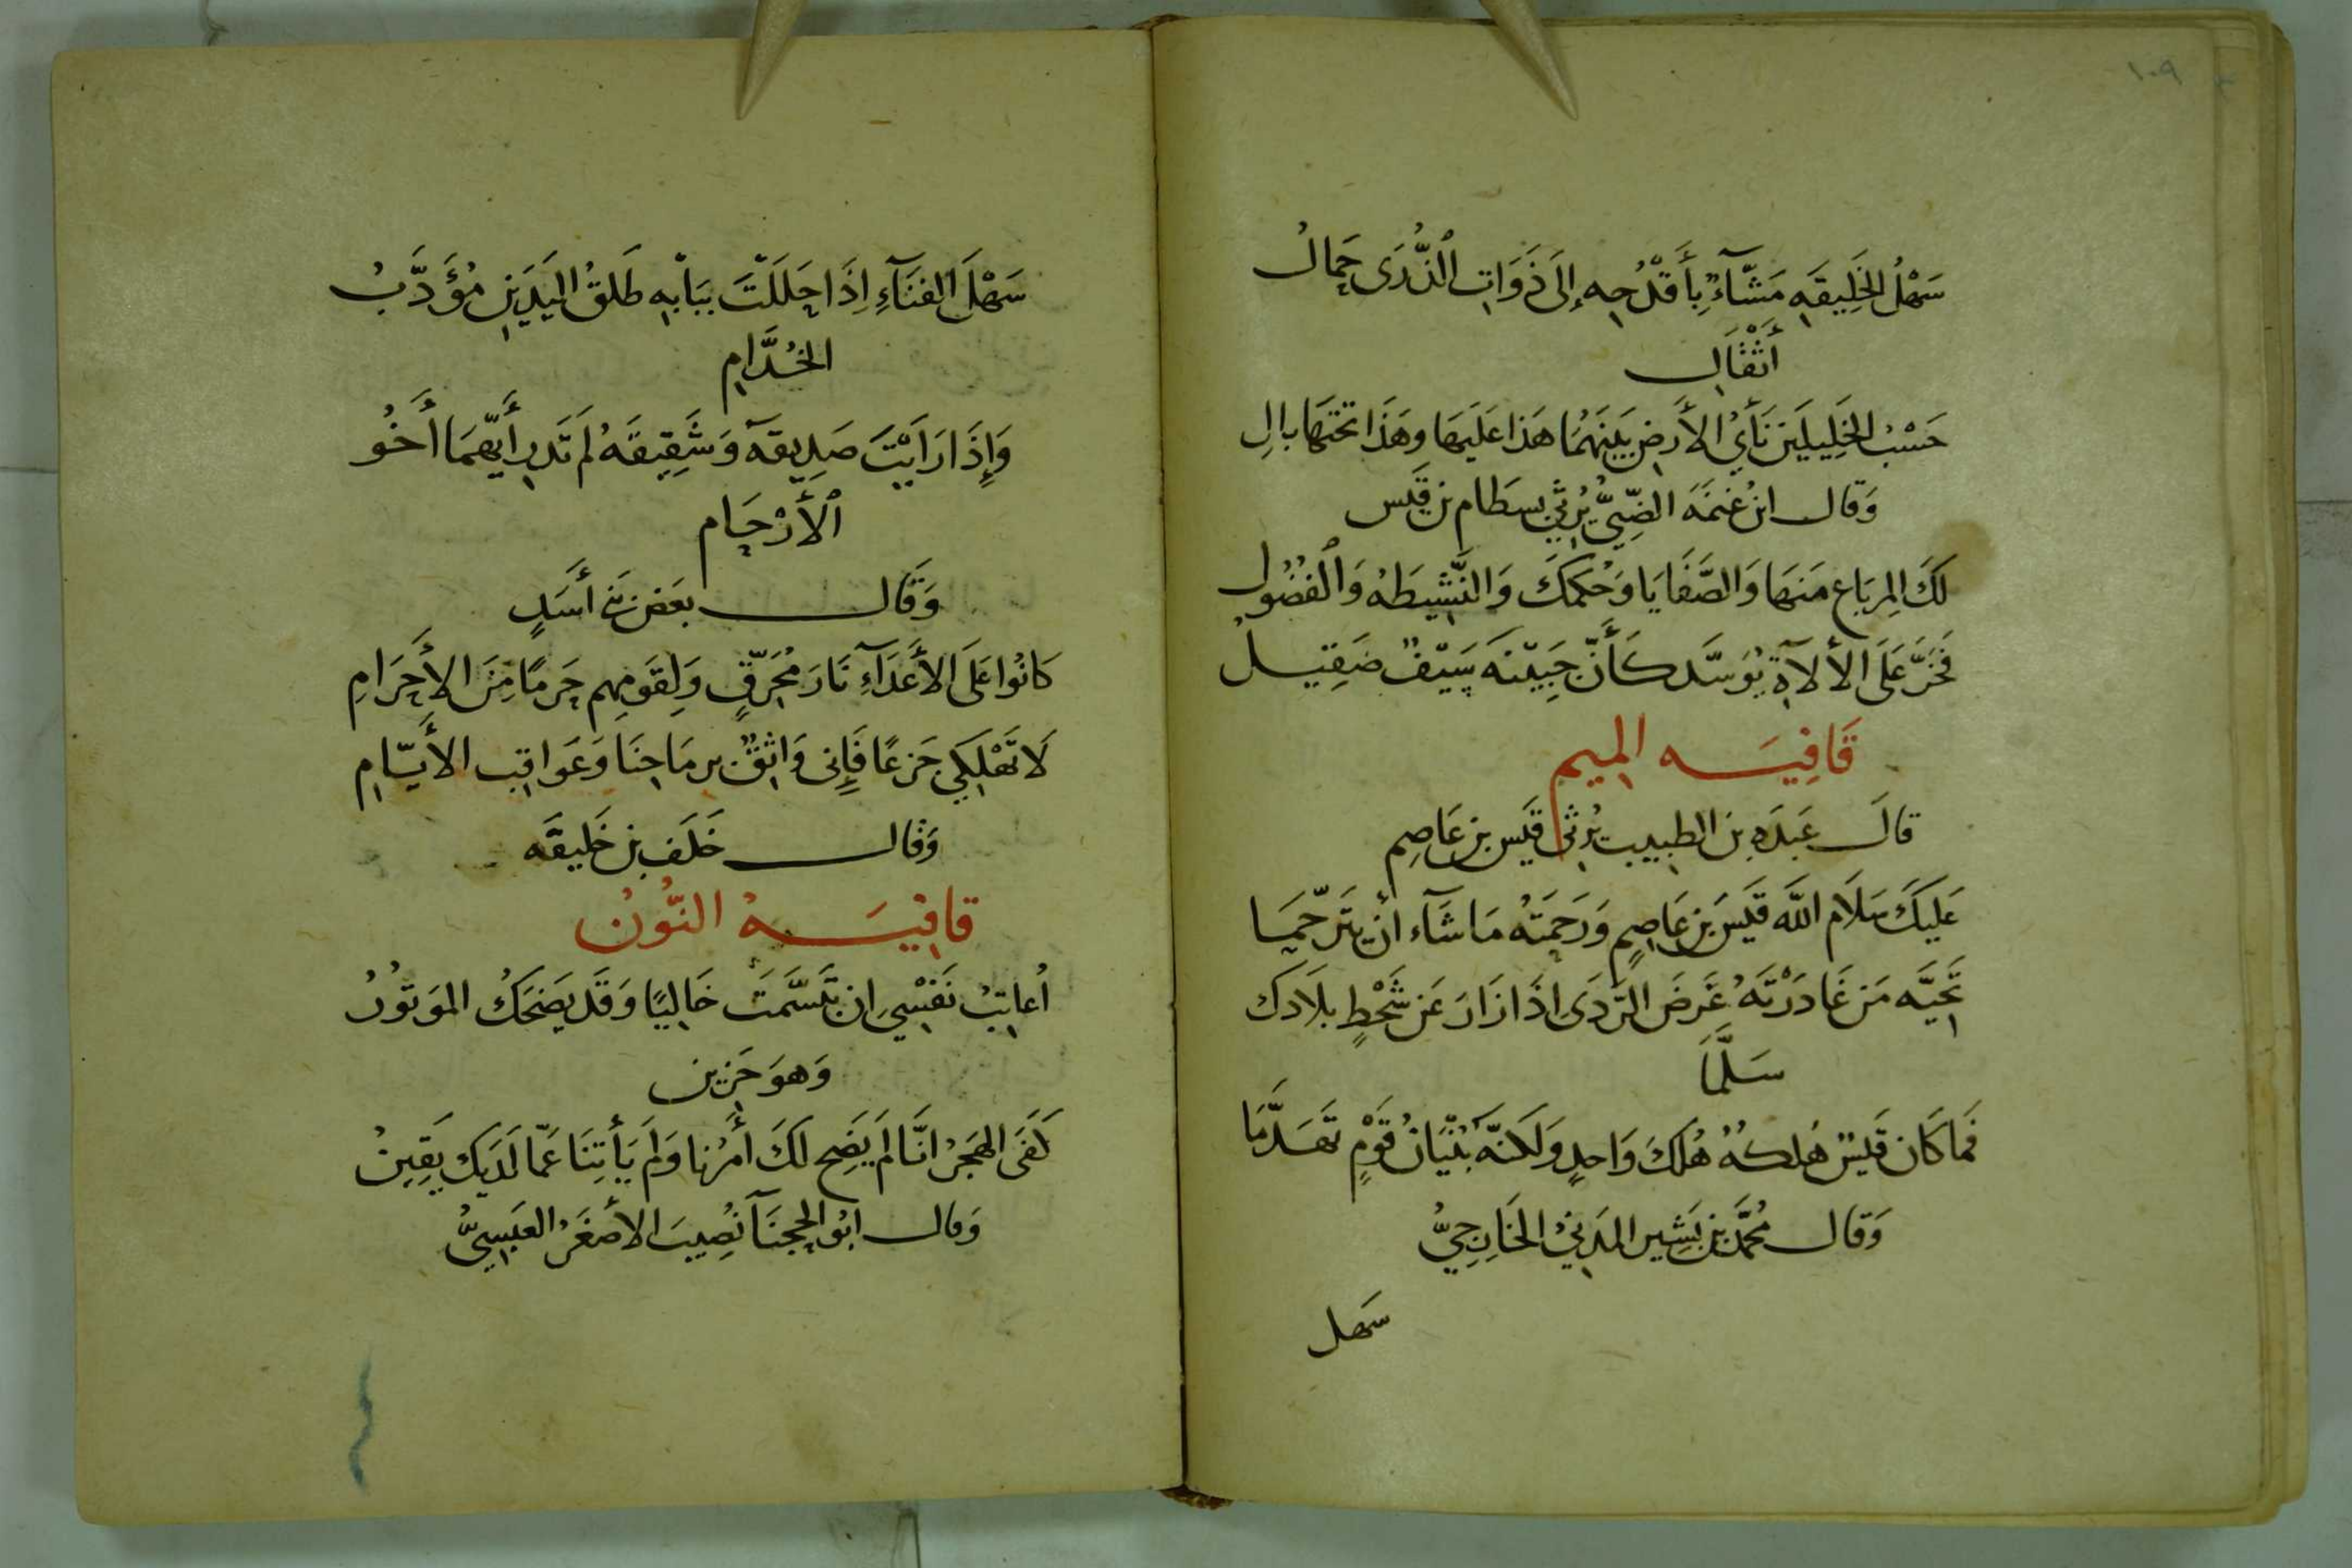 ١٠٩
سَهْلُ الخَلِيقَهِ مَشَّآءٌ بِأَقْدُحِهِ إِلَى ذَوَاتِ الذُّرَى حَمالُ
أَثْقَالِ
حَسْبُ الخَلِيلَيْنِ نَأْيُ الأَرضِ بَيْنَهُمَا هَذَا عَلَيهَا وهَذَا تَحْتَهَا بالِ
وَقال ابنُ غنمَة الضّبِّيُّ يُرثي بِسطَام بن قَيس
لَكَ المِربَاع مِنهَا وَالصَّفَايَا وَحُكمكَ وَالنَّشِيطَهُ وَالْفُضُول
فَخَرَّ عَلَى الألآةِ يُوَسَّد كَأَنَّ جَبِيْنَهُ سَيْفٌ صَقِيل
قَافِيَه المِيم
قالَ عَبدَه بن الطبيب يُرثي قَيس بن عَاصِم
عَلَيكَ سَلَام الله قَيسَ بن عَاصِمٍ وَرَحمَتُه مَا شَآء أن يَتَرحَّمَا
تَحِيَّه مَن غَادَرْتَهُ غَرَضَ الرَّدَى اذَا زَارَ عَن شَحْطٍ بلَادَك
سَلَّمَا
فَما كَان قَيسٌ هُلكهُ هُلكَ وَاحدٍ وَلَكنَّه بُنْيَانُ قَوْمٍ تَهَدَّمَا
وَقال مُحمَّد بن بَشِير المَدِنيْ الخَارِجيُّ
سَهل
سَهْلَ الفنَآءِ اِذَا حلَلَتَ ببَابْهِ طَلقُ اليَدَيْنِ مُؤَدَّبُ
الخُدَّامِ
وَإِذَا رَايَتَ صَدِيقهَ وَشَقِيقَهُ لَم تَدرِ أَيَّهمَا أَخُو
الأَرْحَام
وَقَال بعَض بَني أَسَدٍ
كَانُوا عَلَى الأَعدَآءِ نَارَ مُحَرّقٍ وَلِقَومِهِم حَرمًا مِنَ الأَحرَامِ
لَا تَهْلِكِي جَزعًا فَإِنى وَاثِقٌ برمَاحنَا وَعَوَاقِب الأَيَّامِ
وَقال خَلَف بن خَليفَه
قافِيَهُ النُّون
أُعاتِبُ نَفْسِي ان تبَسَّمَت خَاليًا وَقَد يضَحَكُ المَوتُورُ
وَهوَ حَزين
كَفَى الهَجَرُ انَّا لَم يَضِح لكَ أَمرُنا وَلَم يَأتِنَا عَمّا لَدَيك يَقِينُ
وَقال ابُو الحجنَآ نصُيبَ الأصغَرُ العَبسِيُّ